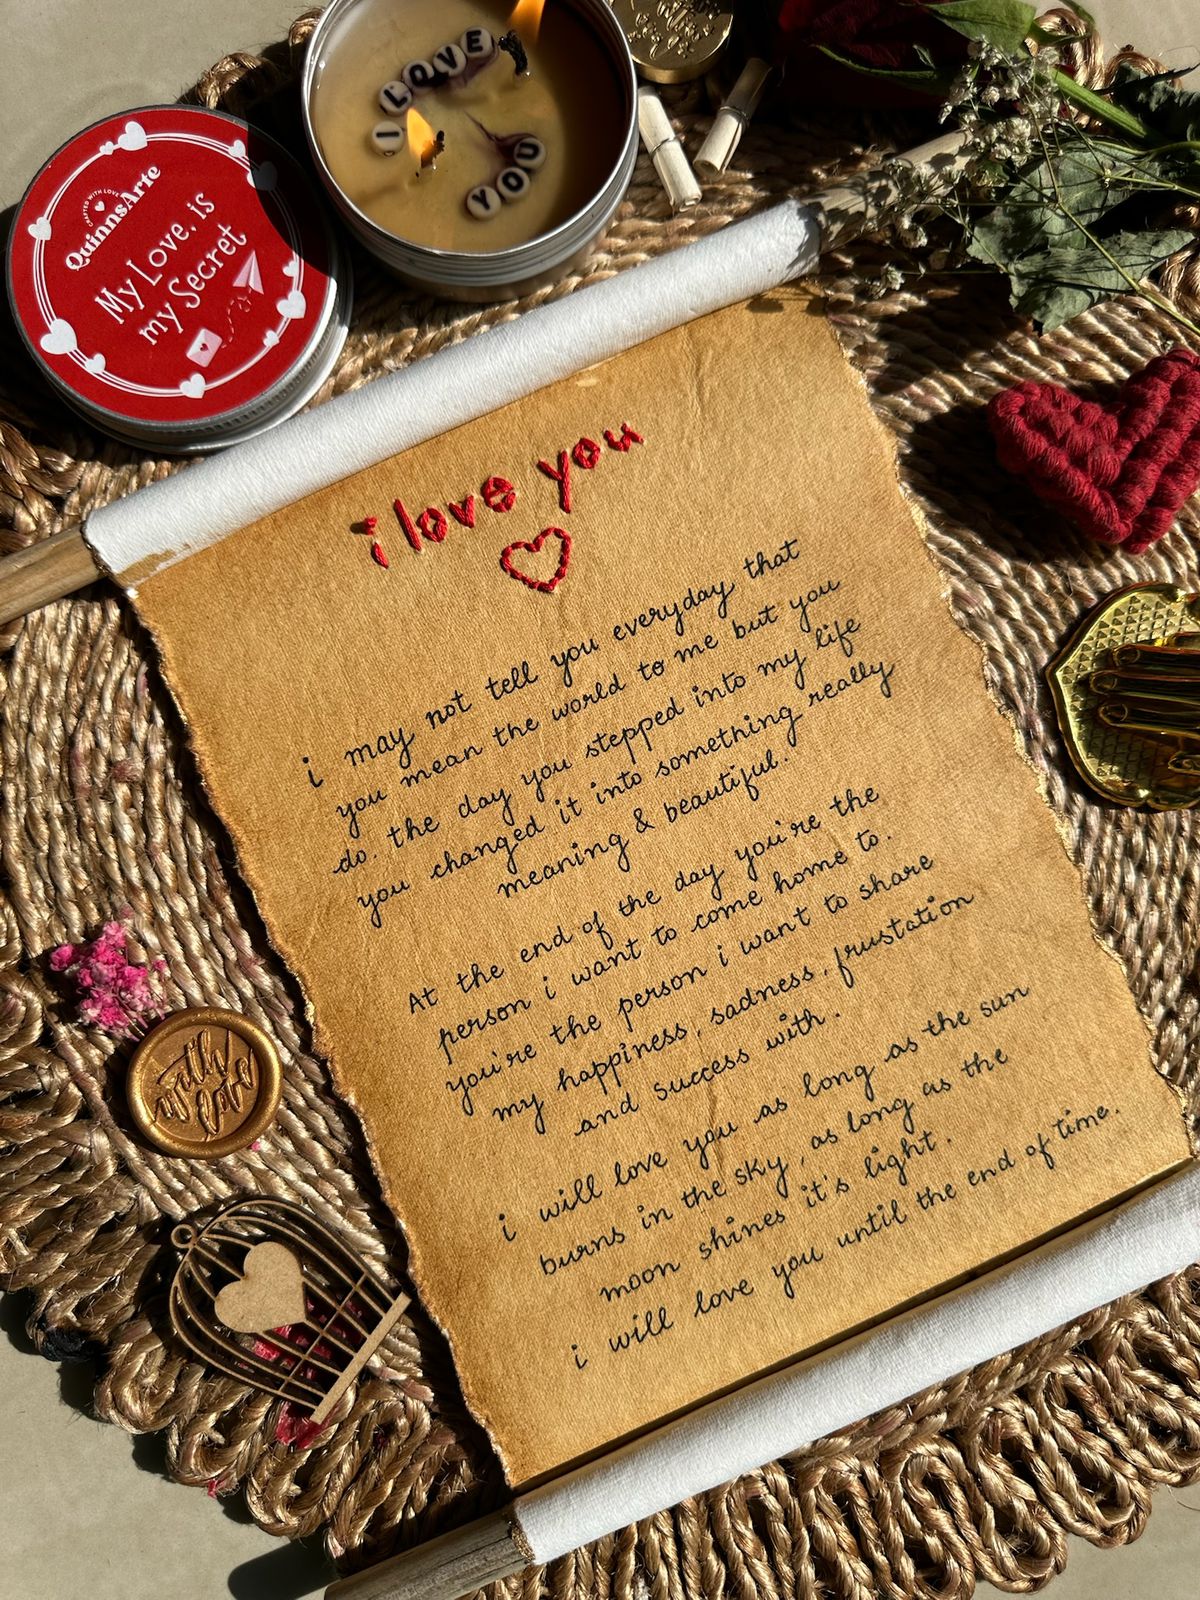 I LOVE
YOU
CRAFTED WITH LOVE
QuinnsArte
My Love, is
my Secret
i love you
i may not tell you everyday that
you mean the world to me but you
do. the day you stepped into my life
you changed it into something really
meaning & beautiful.
At the end of the day you're the
person i want to come home to.
you're the person i want to share
my happiness, sadness, frustation
and success with.
i will love you as long as the sun
burns in the sky, as long as the
moon shines it's light.
i will love you until the end of time.
with
love